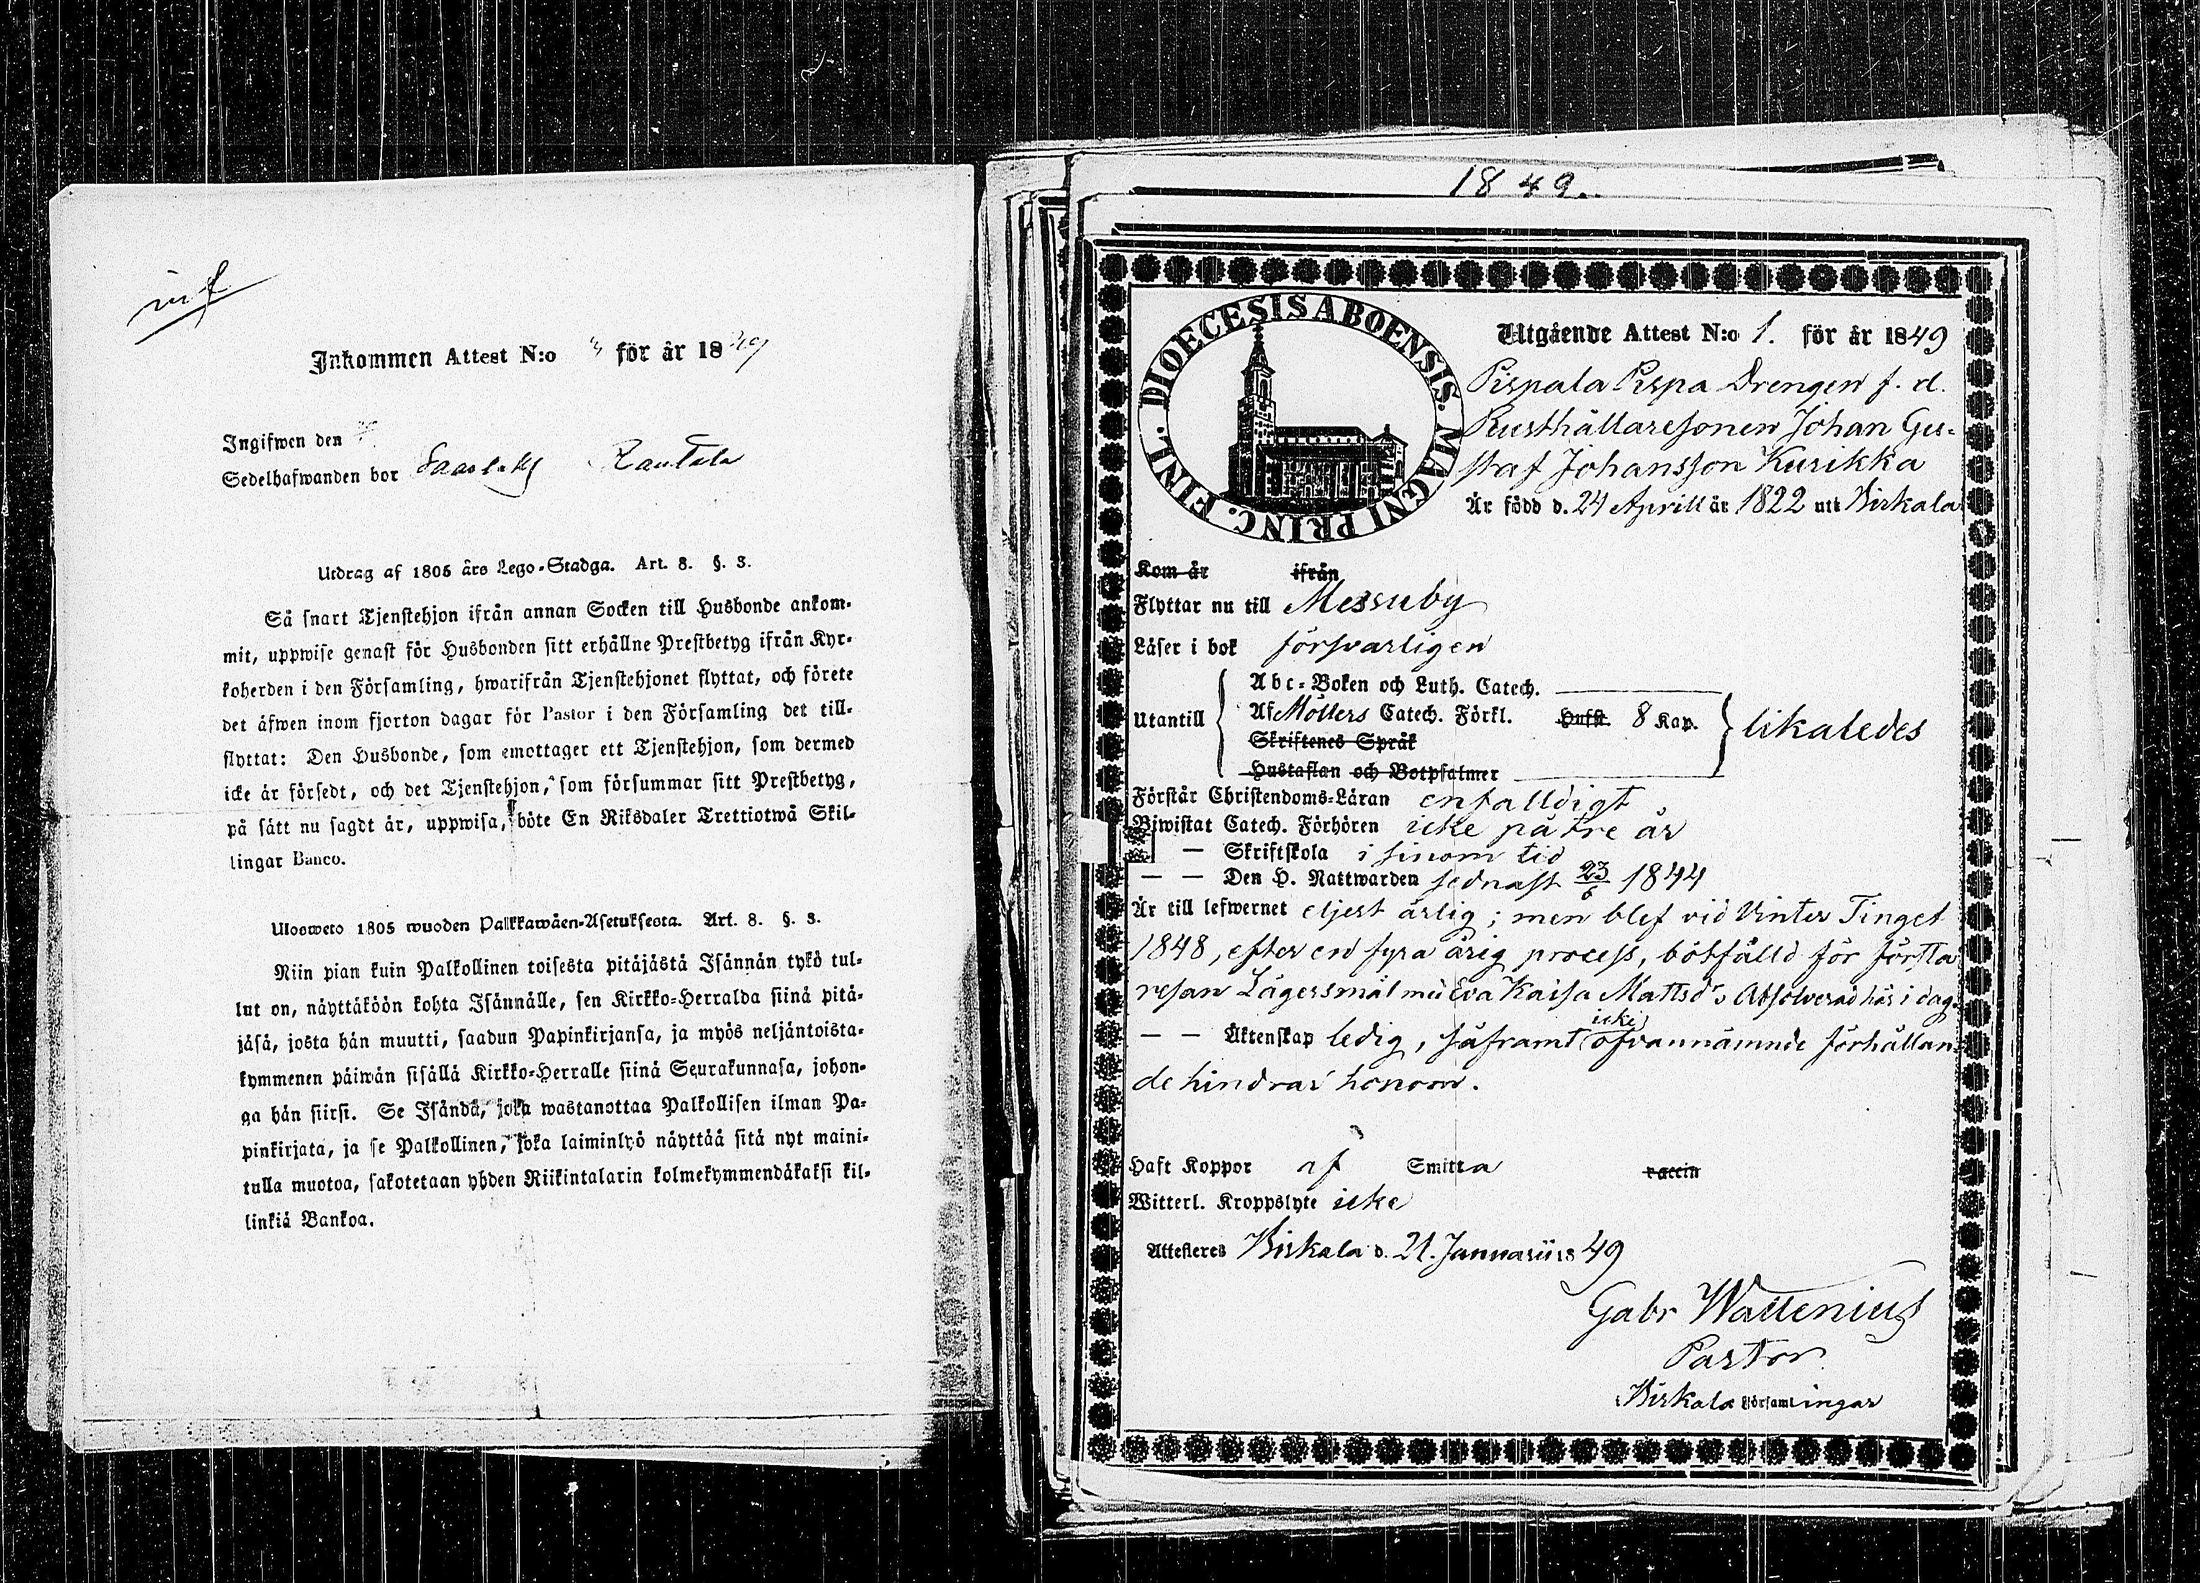 Inkommen Attest N:o för år 1849
Ingifwen den
Sedelhafwanden bor Rantala
Utdrag af 1805 års Lego-Stadga. Art. 8. §. 3.
Så snart Tjenstehjon ifrån annan Socken till Husbonde ankom-
mit, uppwise genast för Husbonden sitt erhållne Prestbetyg ifrån Kyr-
koherden i den Församling, hwarifrån Tjenstehjonet flyttat, och förete
det äfwen inom fjorton dagar för Pastor i den Församling det till-
flyttat: Den Husbonde, som emottager ett Tjenstehjon, som dermed
icke är försedt, och det Tjenstehjon, som försummar sitt Prestbetyg,
på sätt nu sagdt är, uppwisa, böte En Riksdaler Trettiotwå Skil-
lingar Banco.
Ulosweto 1805 wuoden Palkkawäen-Asetuksesta. Art. 8. §. 3.
Niin pian kuin Palkollinen toisesta pitäjästä Isännän tykö tul-
lut on, näyttäköön kohta Isännälle, sen Kirkko-Herralda siinä pitä-
jäsä, josta hän muutti, saadun Papinkirjansa, ja myös neljäntoista-
kymmenen päiwän sisällä Kirkko-Herralle siinä Seurakunnasa, johon-
ga hän siirsi. Se Isändä, joka wastanottaa Palkollisen ilman Pa-
pinkirjata, ja se Palkollinen, joka laiminlyö näyttää sitä nyt maini-
tulla muotoa, sakotetaan yhden Riikintalarin kolmekymmendäkaksi kil-
linkiä Bankoa.
1849.
DIOECESIS ABOENSIS. MAGNI PRINC. FINL.
Utgående Attest N:o 1. för år 1849
Pispala Pispa Drengen f. d.
Rusthållaresonen Johan Gus-
staf Johansson Kurikka
Är född d. 24 Aprill år 1822 uti Birkala
Kom år ifrån
Flyttar nu till Messuby
Läser i bok försvarligen
Utantill
Abc-Boken och Luth. Catech.
Af Möllers Catech. Förkl. Hufst. 8 Kap.
Skriftenes Språk
Hustaflan och Botpsalmer
likaledes
Förstår Christendoms-Läran enfalldigt
Biwistat Catech. Förhören icke på tre år
— Skriftskola i sinom tid
— — Den H. Nattwarden sednast 23/6 1844
Är till lefwernet eljest ärlig; men blef vid Vinter Tinget
1848, efter en fyra årig process, bötfälld för första
resan Lägersmål med Eva Kaisa Mattsd:r, Absolverad här i dag.
— — Äktenskap ledig, såframt icke ofvannämnde förhållan-
de hindrar honom.
Haft Koppor af Smitta vaccin
Witterl. Kroppslyte icke
Attesteres Birkala d. 21. Januarii 1849
Gabr Wallenius
Pastor
Birkala församlingar